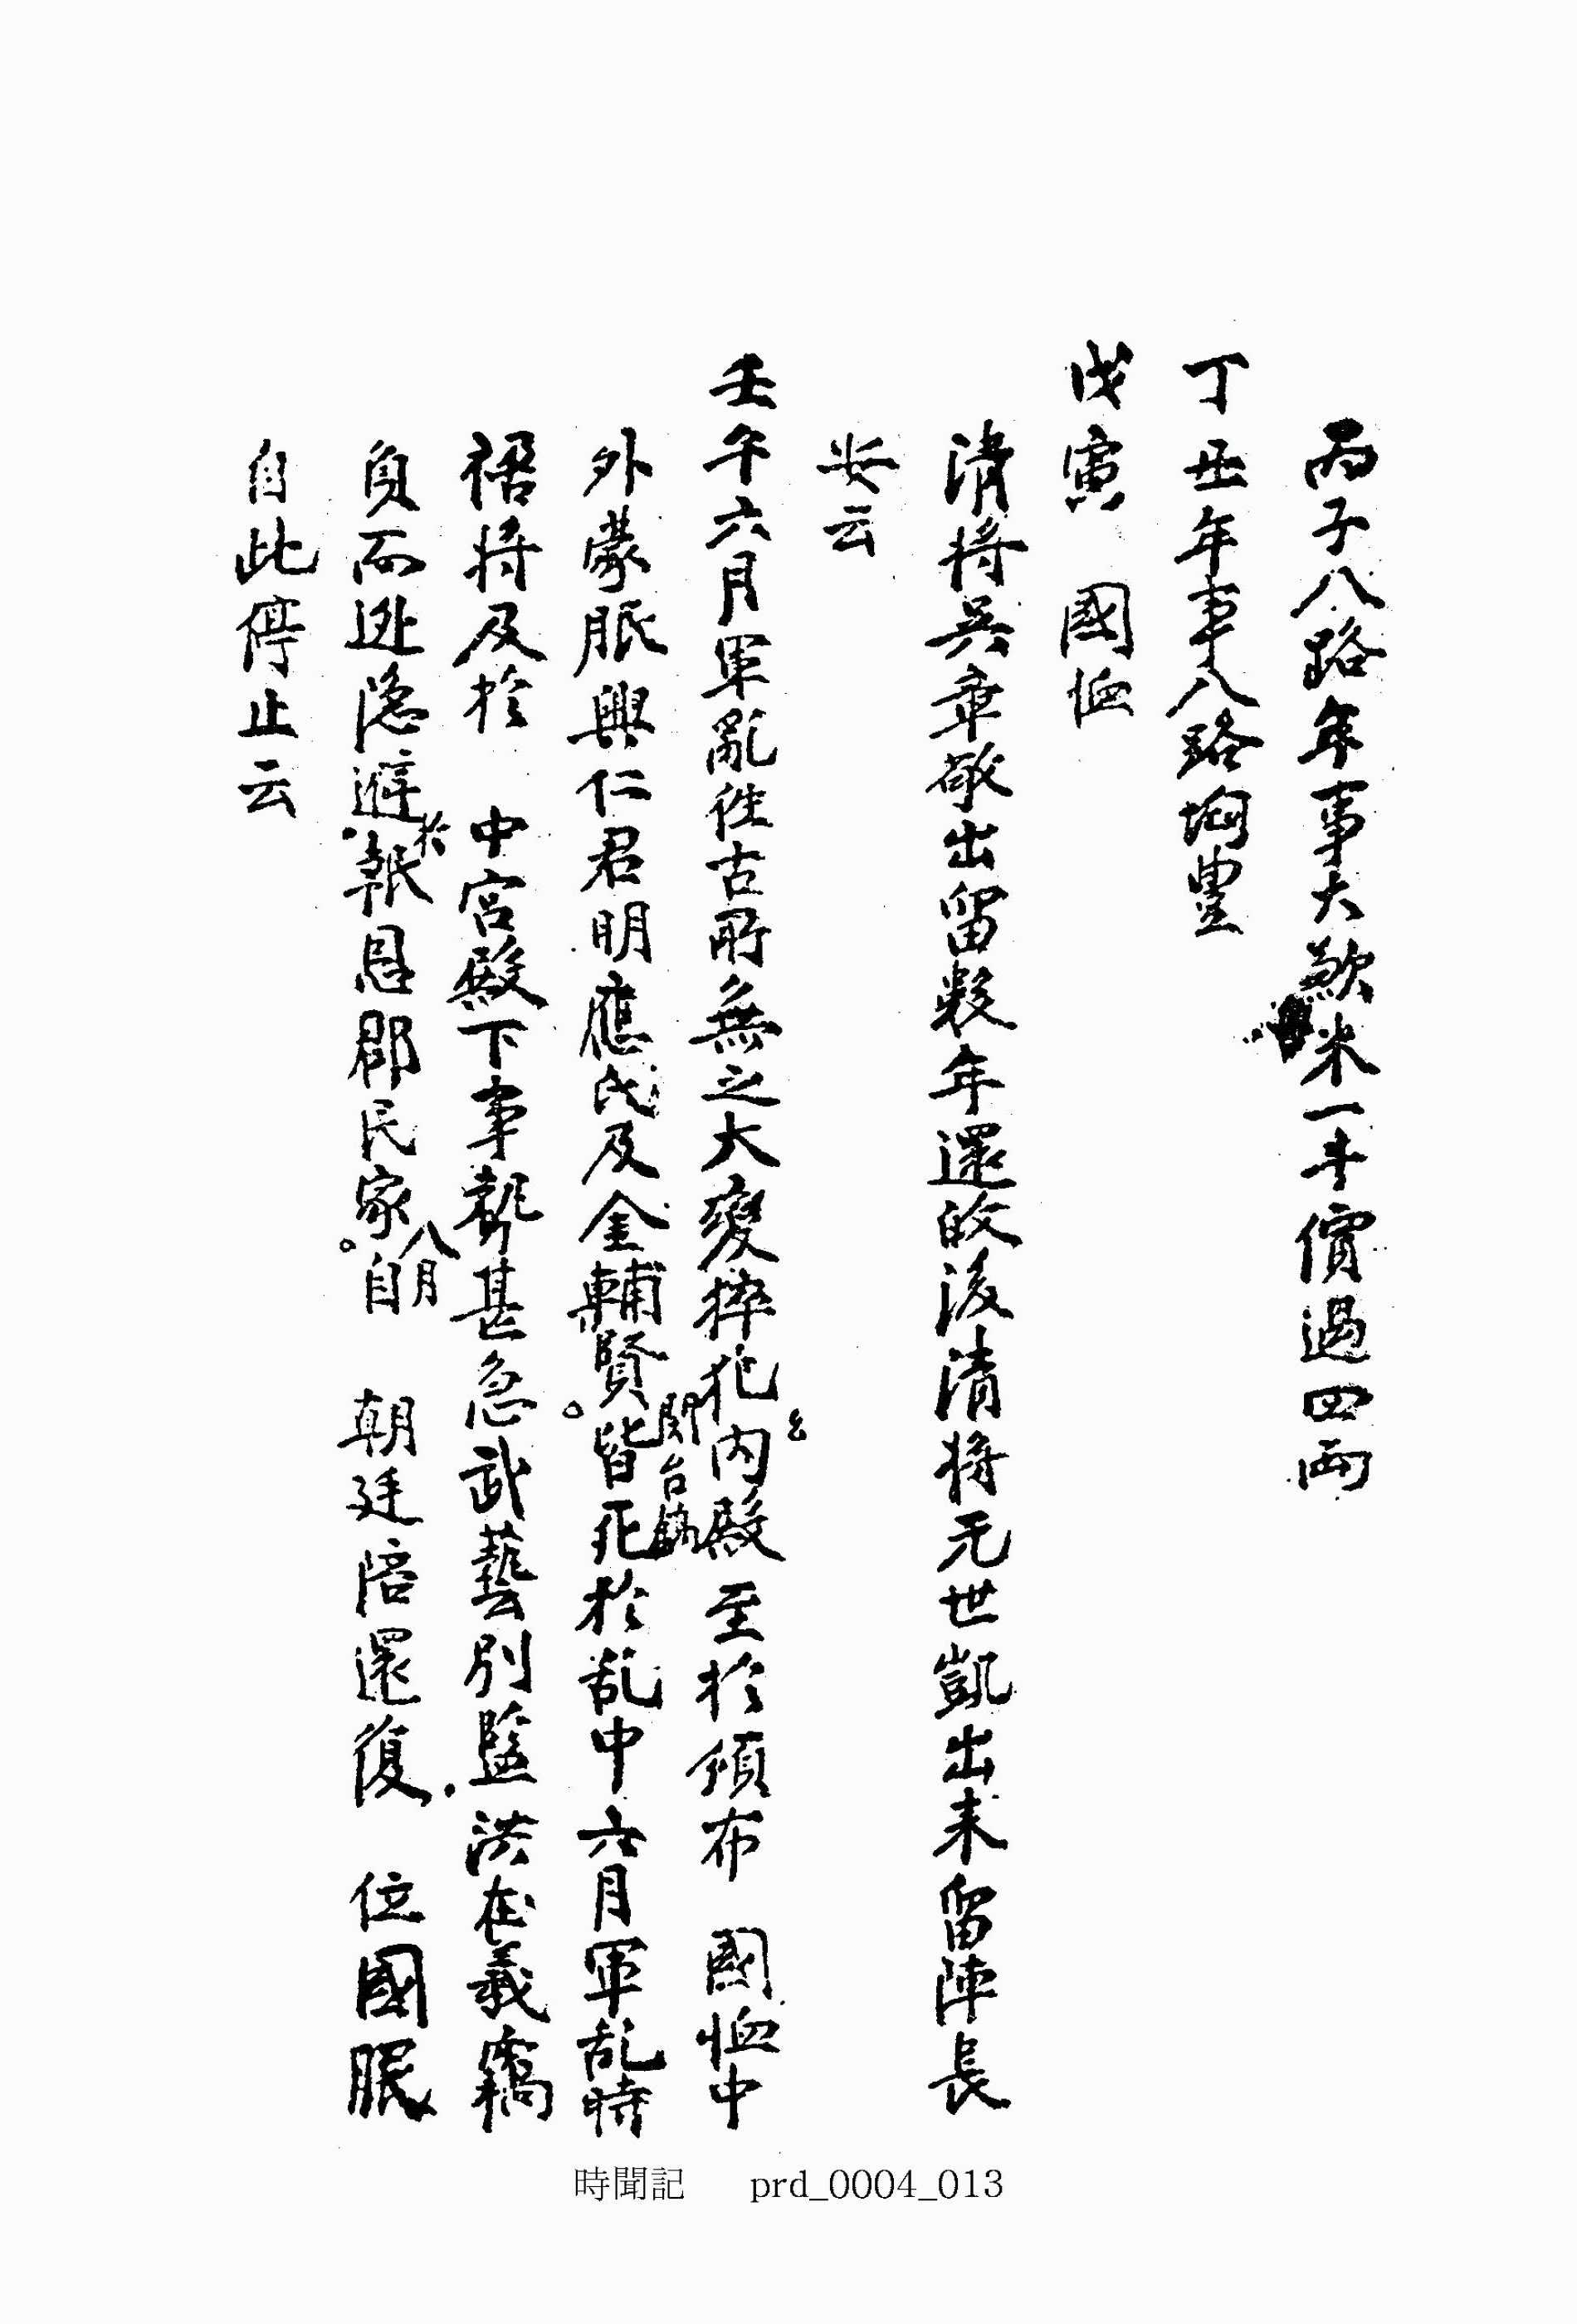 丙子八路年事大歉米一斗價過四兩
丁丑年事八路均豊
戊寅 國恤
清將吳章敬出留數年還故後清将元世凱出来留陣長
安云
壬午六月軍亂徃古所無之大變猝犯内殿至於頒布 國恤中
外蒙服興仁君明應氏及金輔賢閔台鎬皆死於乱中六月軍乱時
禍將及於 中宮殿下事機甚急武藝別監洪在羲竊
負而逃隐避於報恩郡民家八月自 朝廷陪還復 位國服
自此停止云
時聞記 prd_0004_013